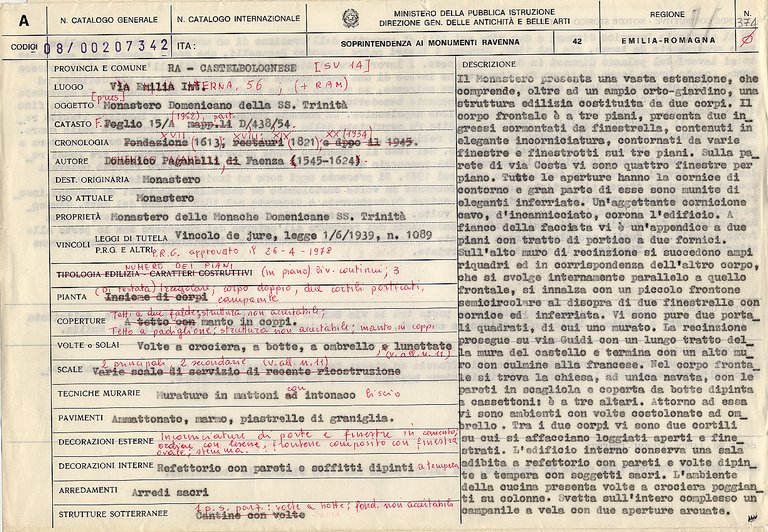 A
N. CATALOGO GENERALE
N. CATALOGO INTERNAZIONALE
MINISTERO DELLA PUBBLICA ISTRUZIONE
DIREZIONE GEN. DELLE ANTICHITÀ E BELLE ARTI
REGIONE
N.
374
CODICI
08/00207342
ITA:
SOPRINTENDENZA AI MONUMENTI RAVENNA
42
EMILIA-ROMAGNA
PROVINCIA E COMUNE RA - CASTELBOLOGNESE [SV 14]
LUOGO Via Emilia INTERNA, 56 ; (+ RAM)
OGGETTO Monastero Domenicano della SS. Trinità
CATASTO F. Foglio 15/A (1962) mapp.li part. D/438/54.
XVII XVIII XIX XX (1934)
CRONOLOGIA Fondazione (1613, restauri (1821) e dopo il 1945.
AUTORE Domenico Paganelli di Faenza (1545-1624).
DEST. ORIGINARIA Monastero
USO ATTUALE Monastero
PROPRIETÀ Monastero delle Monache Domenicane SS. Trinità
VINCOLI
LEGGI DI TUTELA Vincolo de jure, legge 1/6/1939, n. 1089
P.R.G. E ALTRI P.R.G. approvato il 26-4-1978
NUMERO DEI PIANI
TIPOLOGIA EDILIZIA - CARATTERI COSTRUTTIVI (in piano) liv. continui; 3
(di testata) irregolari; corpo doppio, due cortili porticati,
PIANTA Insieme di corpi campanile
Tetti a due falde; struttura non accertabile;
COPERTURE A tetto con manto in coppi.
Tetto a padiglione; struttura non accertabile; manto in coppi
VOLTE o SOLAI Volte a crociera, a botte, a ombrello e lunettate
(v. all. n. 11)
2 principali 2 secondarie (v. all. n. 11)
SCALE Varie scale di servizio di recente ricostruzione
TECNICHE MURARIE Murature in mattoni ad con intonaco liscio
PAVIMENTI Ammattonato, marmo, piastrelle di graniglia.
DECORAZIONI ESTERNE Incorniciature di porte e finestre in cemento,
ordine con lesene, frontone composito con finestra
ovale; stemma.
DECORAZIONI INTERNE Refettorio con pareti e soffitti dipinti a tempera
ARREDAMENTI Arredi sacri
1 p.s. part.: volte a botte; fond. non accertabili
STRUTTURE SOTTERRANEE Cantine con volte
DESCRIZIONE
Il Monastero presenta una vasta estensione, che
comprende, oltre ad un ampio orto-giardino, una
struttura edilizia costituita da due corpi. Il
corpo frontale è a tre piani, presenta due in_
gressi sormontati da finestrella, contenuti in
elegante incorniciatura, contornati da varie
finestre e finestrotti sui tre piani. Sulla pa_
rete di via Costa vi sono quattro finestre per
piano. Tutte le aperture hanno la cornice di
contorno e gran parte di esse sono munite di
eleganti inferriate. Un'aggettante cornicione
cavo, d'incannicciato, corona l'edificio. A
fianco della facciata vi è un'appendice a due
piani con tratto di portico a due fornici.
Sull'alto muro di recinzione si succedono ampi
riquadri ed in corrispondenza dell'altro corpo,
che si svolge internamente parallelo a quello
frontale, si innalza con un piccolo frontone
semicircolare al disopra di due finestrelle con
cornice ed inferriata. Vi sono pure due porta_
li quadrati, di cui uno murato. La recinzione
prosegue su via Guidi con un lungo tratto del_
la mura del castello e termina con un alto mu_
ro con culmine alla francese. Nel corpo fronta_
le si trova la chiesa, ad unica navata, con le
pareti in scagliola e coperta da botte dipinta
a cassettoni: è a tre altari. Attorno ad essa
vi sono ambienti con volte costolonate ad om_
brello. Tra i due corpi vi sono due cortili
su cui si affacciano loggiati aperti e fine_
strati. L'edificio interno conserva una sala
adibita a refettorio con pareti e volte dipin_
te a tempera con soggetti sacri. L'ambiente
della cucina presenta volte a crociera poggian_
ti su colonne. Svetta sull'intero complesso un
campanile a vela con due aperture arcuate.